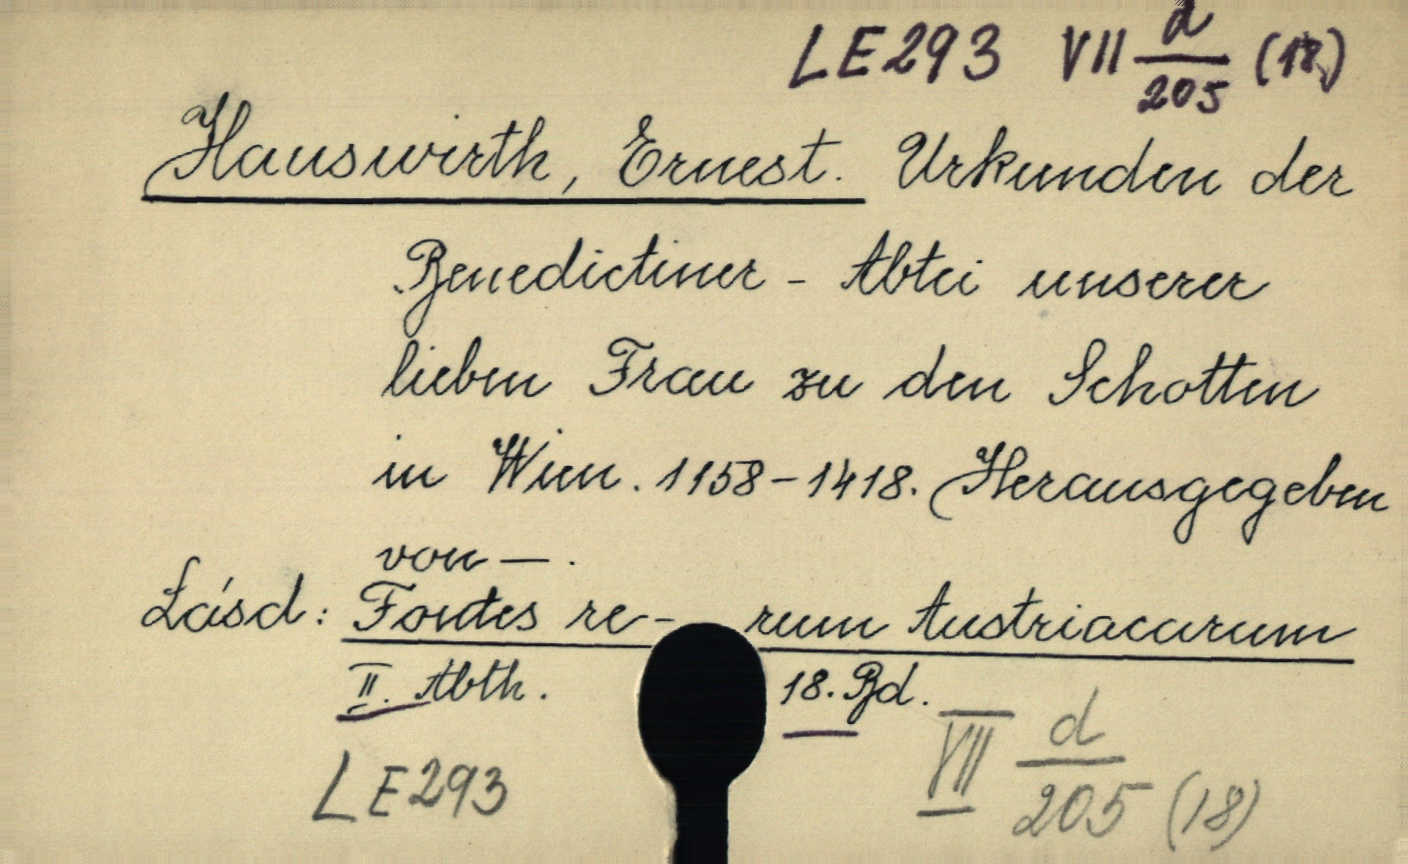 LE293 VII d/205 (18.)
Hauswirth, Ernest. Urkunden der
Benedictiner - Abtei unserer
lieben Frau zu den Schotten
in Wien. 1158-1418. Herausgegeben
von —.
Lásd: Fontes re- rum Austriacarum
II. Abth. 18. Bd.
LE293 VII d/205 (18)